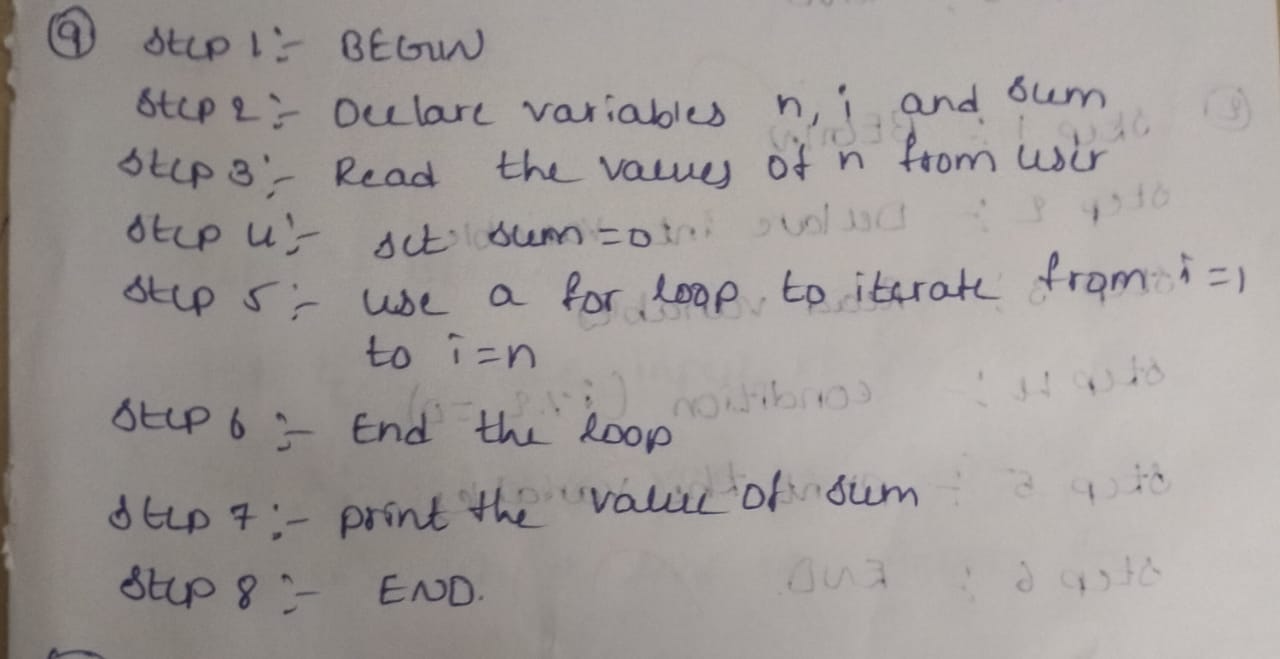 9 Step 1:- BEGIN
Step 2:- Declare variables n, i and sum
Step 3:- Read the values of n from user
Step 4:- set sum=0
Step 5:- use a for loop to iterate from i=1
to i=n
Step 6:- End the loop
Step 7:- print the value of sum
Step 8:- END.